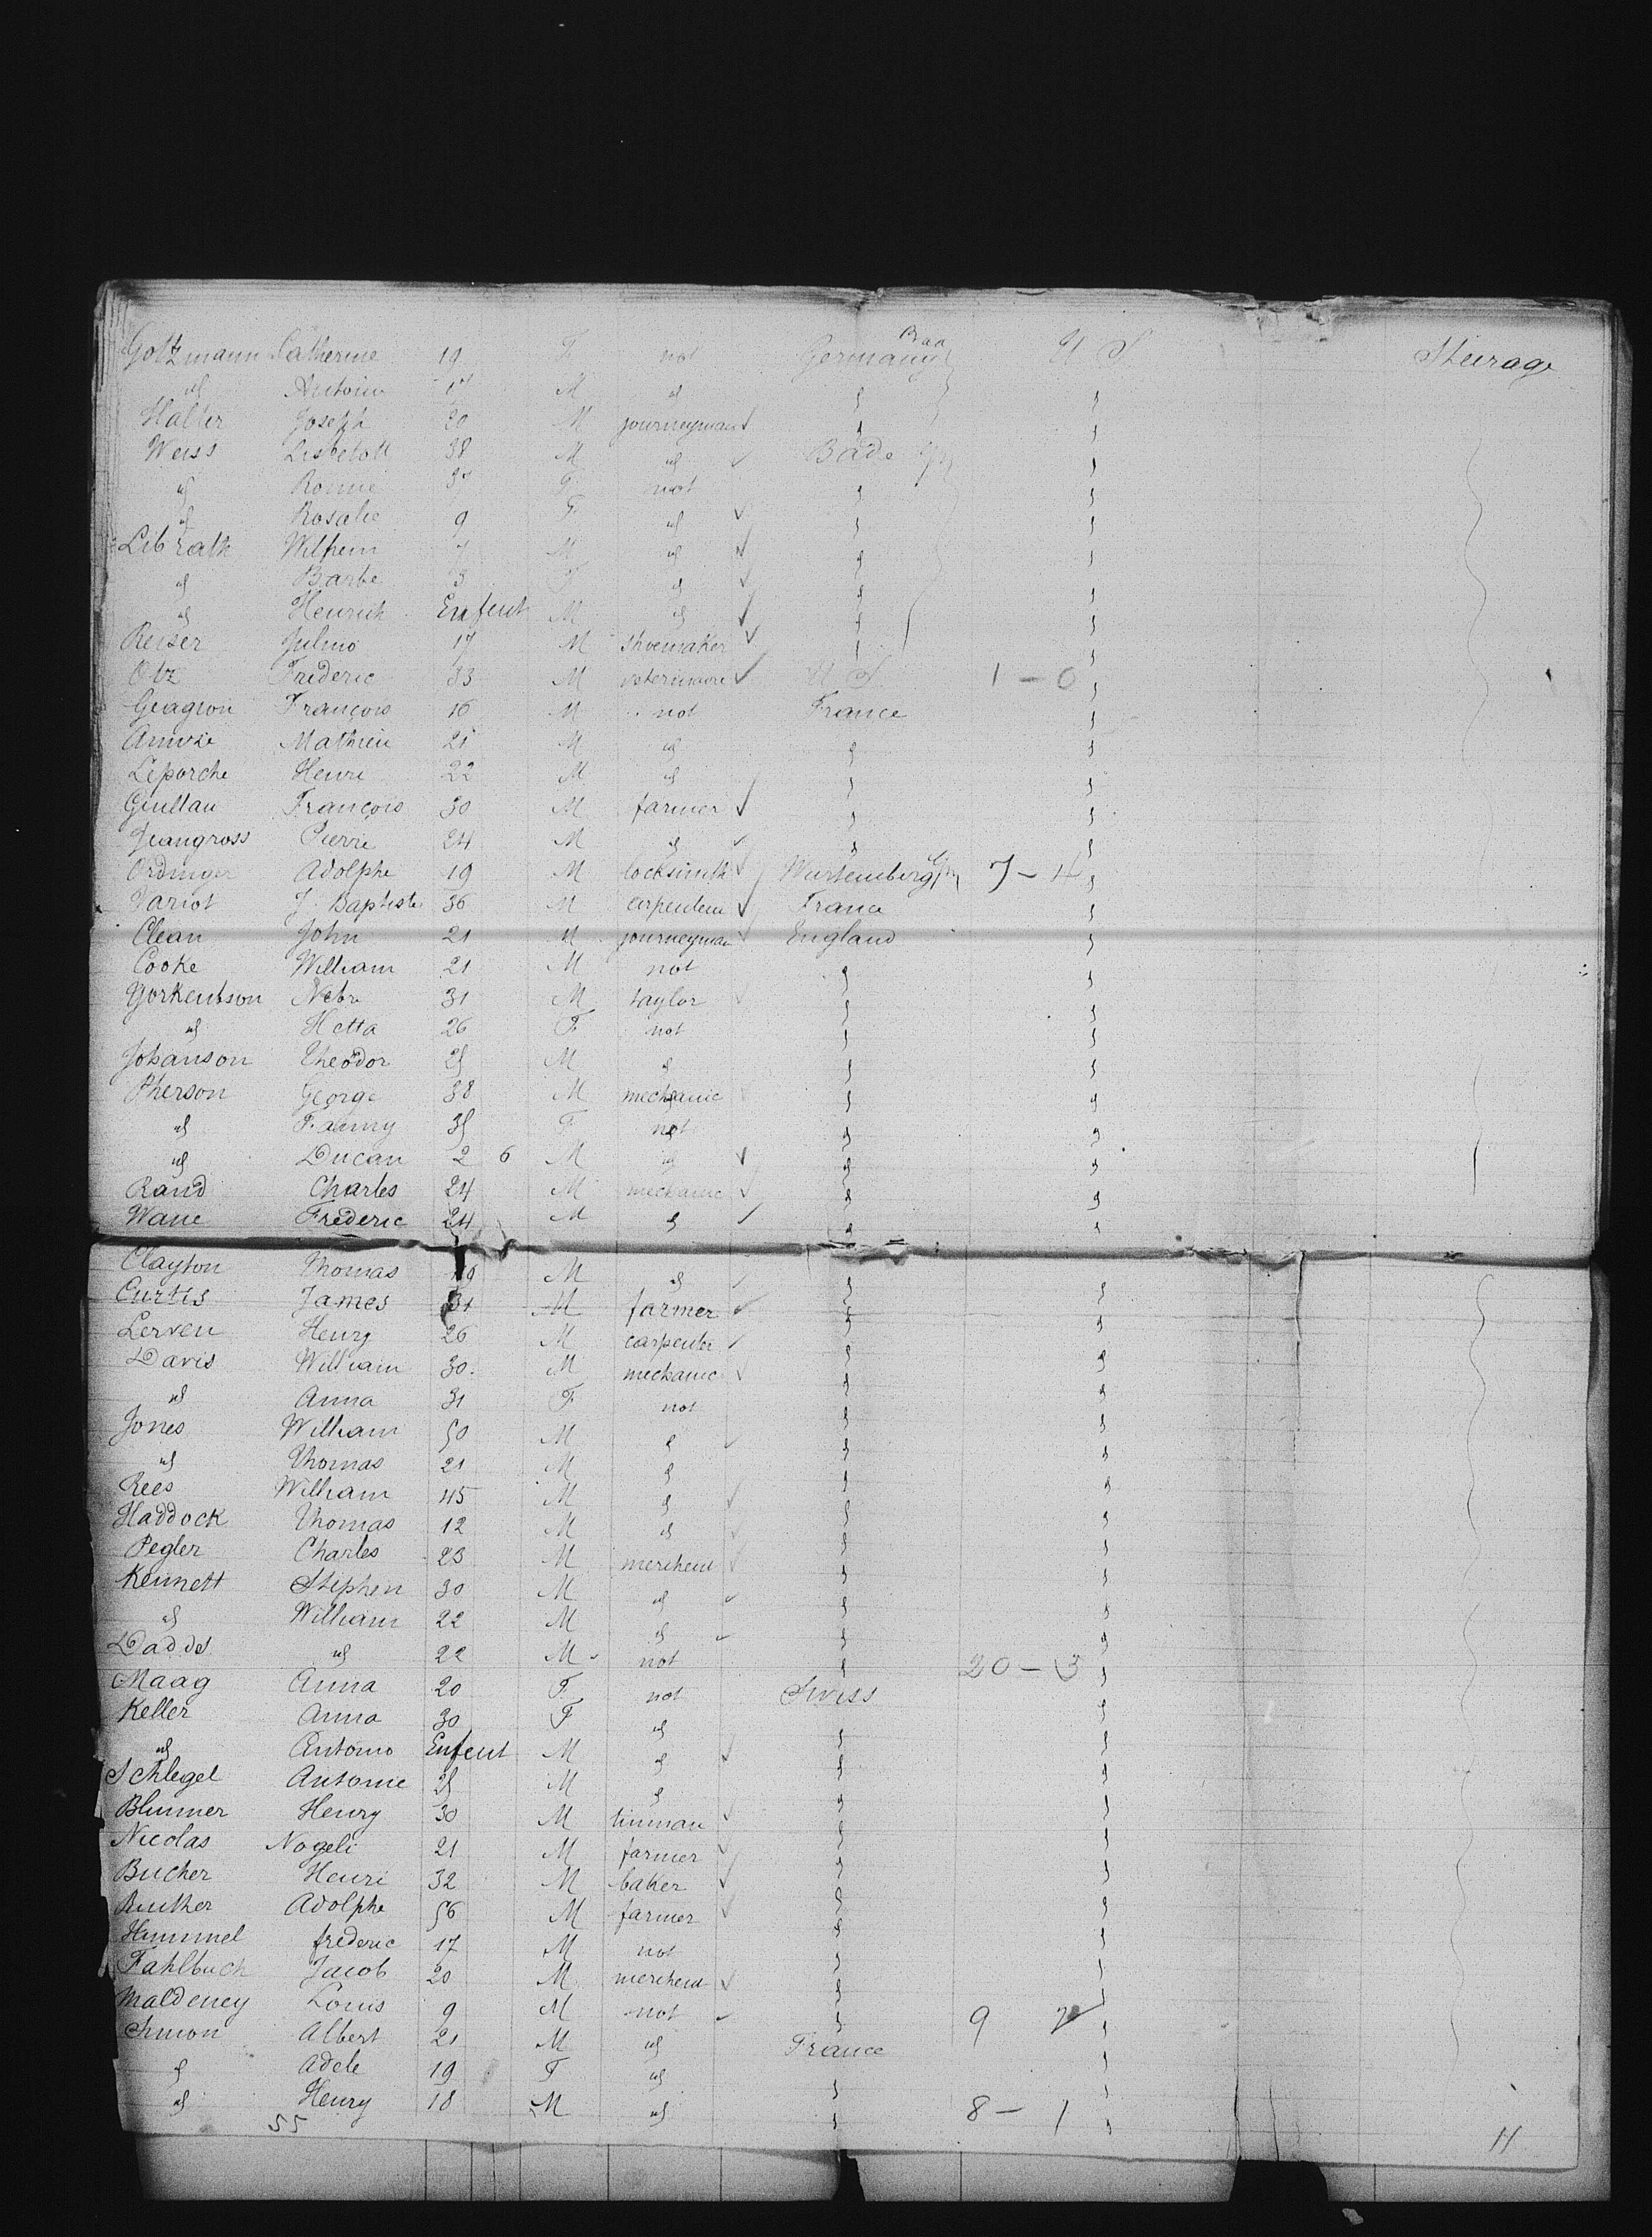 Gotzmann Catherine 19 F not Germany Baa U S Steerage
" Antoine 17 M " " "
Haller Joseph 20 M journeyman " "
Weiss 38 M " Bade "
" 37 F not " "
" Rosalie 9 F " " "
Librath Wilhem M " " "
" Barbe 3 F " " "
" Henrich Enfent M " " "
Reiser Julius 17 M shoemaker " "
Otz Frederic 33 M veterinaire U S 1 - 0 "
François 16 M not France "
Mathieu 21 M " " "
Leporche Henri 22 M " " "
François 30 M farmer " "
Jeangross Pierre 24 M " " "
Ordinger Adolphe 19 M locksmith Wurtemberg 7 - 4 "
Variot J. Baptiste 36 M France "
Clean John 21 M journeyman England "
Cooke William 21 M not " "
Yorkentson 31 M taylor " "
" Hetta 26 F not " "
Johanson Theodor 25 M " " "
Pherson George 38 M mechanic " "
" Fanny 35 F not " "
" Ducan 2 6 M " " "
Rand Charles 24 M mechanic " "
Wane Frederic 24 M " " "
Clayton Thomas 19 M " "
Curtis James 31 M farmer " "
Lerven Henry 26 M carpenter " "
Davis William 30 M mechanic " "
" Anna 31 F not " "
Jones William 50 M " " "
" Thomas 21 M " " "
Rees William 45 M " " "
Haddock Thomas 12 M " " "
Pegler Charles 23 M merchent " "
Kennett Stephen 30 M " " "
" William 22 M " " "
Dadds " 22 M not " 20 - 3 "
Maag Anna 20 F not Swiss "
Keller Anna 30 F " " "
" Antonio Enfent M " " "
Schlegel Antonie 25 M " " "
Blumer Henry 30 M tinman " "
Nicolas Nogeli 21 M farmer " "
Bucher Henri 32 M baker " "
Adolphe 56 M farmer " "
Hummel frederic 17 M not " "
Fahlbuch Jacob 20 M merchent " "
Maldeney Louis 9 M not " 9 "
Simon Albert 21 M " France "
" Adele 19 F " " "
" Henry 18 M " " 8 - 1 "
55 11